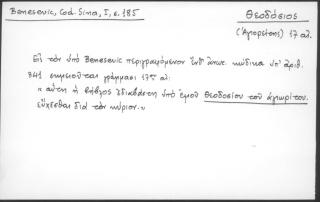 Benesevic, Cod. Sina, I, σ. 185
Θεοδόσιος
(Ἁγιορείτης) 17 αἰ.
Εἰς τὸν ὑπὸ Benesevic περιγραφόμενον κώδικα ὑπ' ἀριθ.
341 σημειοῦται γράμμασι 17ου αἰ:
« αὕτη ἡ βίβλος ἐδιαβάστη ὑπὸ ἐμοῦ Θεοδοσίου τοῦ ἁγιωρίτου.
εὔχεσθαι διὰ τὸν κύριον.»